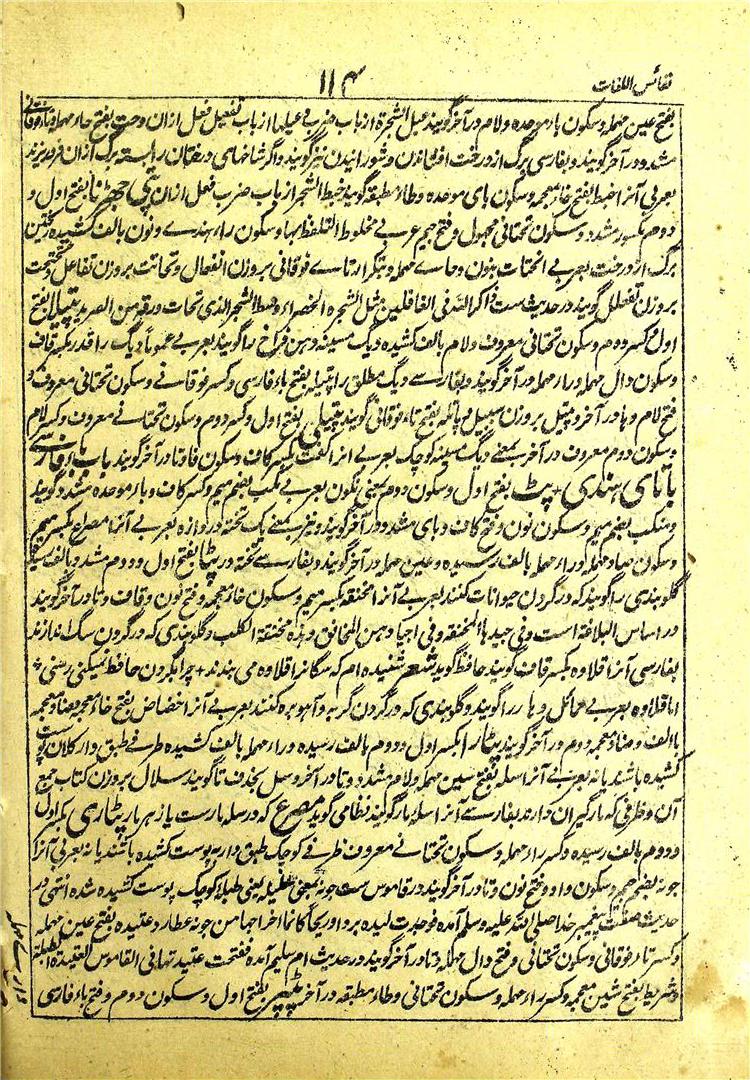 نفائس اللغات
۱۱۴
بفتح عین مهمله و سکون باء موحده و لام در آخر گویند عبل الشجرة از باب ضرب
مشدد در آخر گویند و بفارسی برگ از درخت افتادن و شورانیدن نیز گویند و اگر شاخهای درختان را بسته برگ از آن فرو ریزند
بعربی آنرا خبط بفتح خاء معجمه و سکون بای موحده و طاء مطبقه گویند خبط الشجر از باب ضرب فعل از ان بفتح اول و
دوم مکسور مشدد و سکون تحتانی مجهول و فتح جیم عربی مخلوط التلفظ بها و سکون راء هندی و نون بالف کشیده
برگ از درخت بعربی انحتات بنون و حاء مهمله و بتکرار تاء فوقانی بر وزن انفعال و تحاتت بر وزن تفاعل
بروزن تفعلل گویند در حدیث ست ذاکر الله فی الغافلین مثل الشجرة الخضراء وسط الشجر الذی تحات ورقه من الضرید پتیلا بفتح
اول و کسر دوم و سکون تحتانی معروف و لام بالف کشیده دیگ مسینه دهن فراخ را گویند بعربی عموماً دیگ را قدر بکسر قاف
و سکون دال مهمله و راء مهمله در آخر گویند و بفارسی دیگ مطلق را پتیله بفتح باء فارسی و کسر فوقانی و سکون تحتانی معروف و
فتح لام و ها در آخر و پتیل بروزن سبیل و پاتله بفتح تاء فوقانی گویند پتیلی بفتح اول و کسر دوم و سکون تحتانی معروف و کسر لام
و سکون دوم معروف در آخر بمعنی دیگ مسینه کوچک بعربی آنرا کفت بکسر کاف و سکون فا و تا در آخر گویند باب باء فارسی
با تای هندی پٹ بفتح اول و سکون دوم بمعنی نگون بعربی مکب بضم میم و کسر کاف و باء موحده مشدد گویند
و منکب بضم میم و سکون نون و فتح کاف و بای مشدد در آخر گویند و نیز بمعنی یک تخته دروازه بعربی آنرا مصراع بکسر میم
و سکون صاد مهمله و راء مهمله بالف رسیده و عین مهمله در آخر گویند و بفارسی تخته در پٹا بفتح اول و دوم مشدد بالف رسیده
گلوبندی را گویند که در گردن حیوانات کنند بعربی آنرا مخنقه بکسر میم و سکون خاء معجمه و فتح نون و قاف و تا در آخر گویند
در اساس البلاغة است و فی جیدها المخنقة و فی اجیادهن المخانق و هذه مخنقة الکلب و گلوبندی که در گردن سگ اندازند
بفارسی آنرا قلاوه بکسر قاف گویند حافظ گوید شعر شنیده ام که سگانرا قلاوه می بندند + چرا بگردن حافظ نمیکنی رسنی +
اما قلاوه بعربی حمائل و هار را گویند و گلوبندی که در گردن گربه و آهو بره کنند بعربی آنرا خضاض بفتح خاء معجمه و ضاد معجمه
با الف و ضاد معجمه دوم در آخر گویند پٹارا بکسر اول و دوم بالف رسیده و راء مهمله بالف کشیده ظرفی طبق وار کلان پوست
کشیده باشد یا نه بعربی آنرا سله بفتح سین مهمله و لام مشدد و تا در آخر و سل بحذف تا گویند سلال بروزن کتاب جمع
آن و ظرفی که مارگیران دارند بفارسی آنرا سله مار گویند نظامی گوید مصرع که در سله مارست یا زهر مار پٹاری بکسر اول
و دوم بالف رسیده و کسر راء مهمله و سکون تحتانی معروف ظرفی کوچک طبق وار به پوست کشیده باشند یا نه بعربی آنرا
جونه بضم جیم و سکون واو و فتح نون و تا در آخر گویند در قاموس ست جونه بمعنی کوچک پوست کشیده شده انتهی در
حدیث صفت پیغمبر خدا صلی الله علیه و سلم آمده فوجدت لیده بردا و ریحاً کانما اخرجها من جونة عطار و عتیده بفتح عین مهمله
و کسر تاء فوقانی و سکون تحتانی و فتح دال مهمله و تا در آخر گویند در حدیث ام سلیم آمده ففتحت عتیدتها فی القاموس العتیدة
و شریط بفتح شین معجمه و کسر راء مهمله و سکون تحتانی و طاء مطبقه در آخر بفتح اول و سکون دوم و فتح باء فارسی